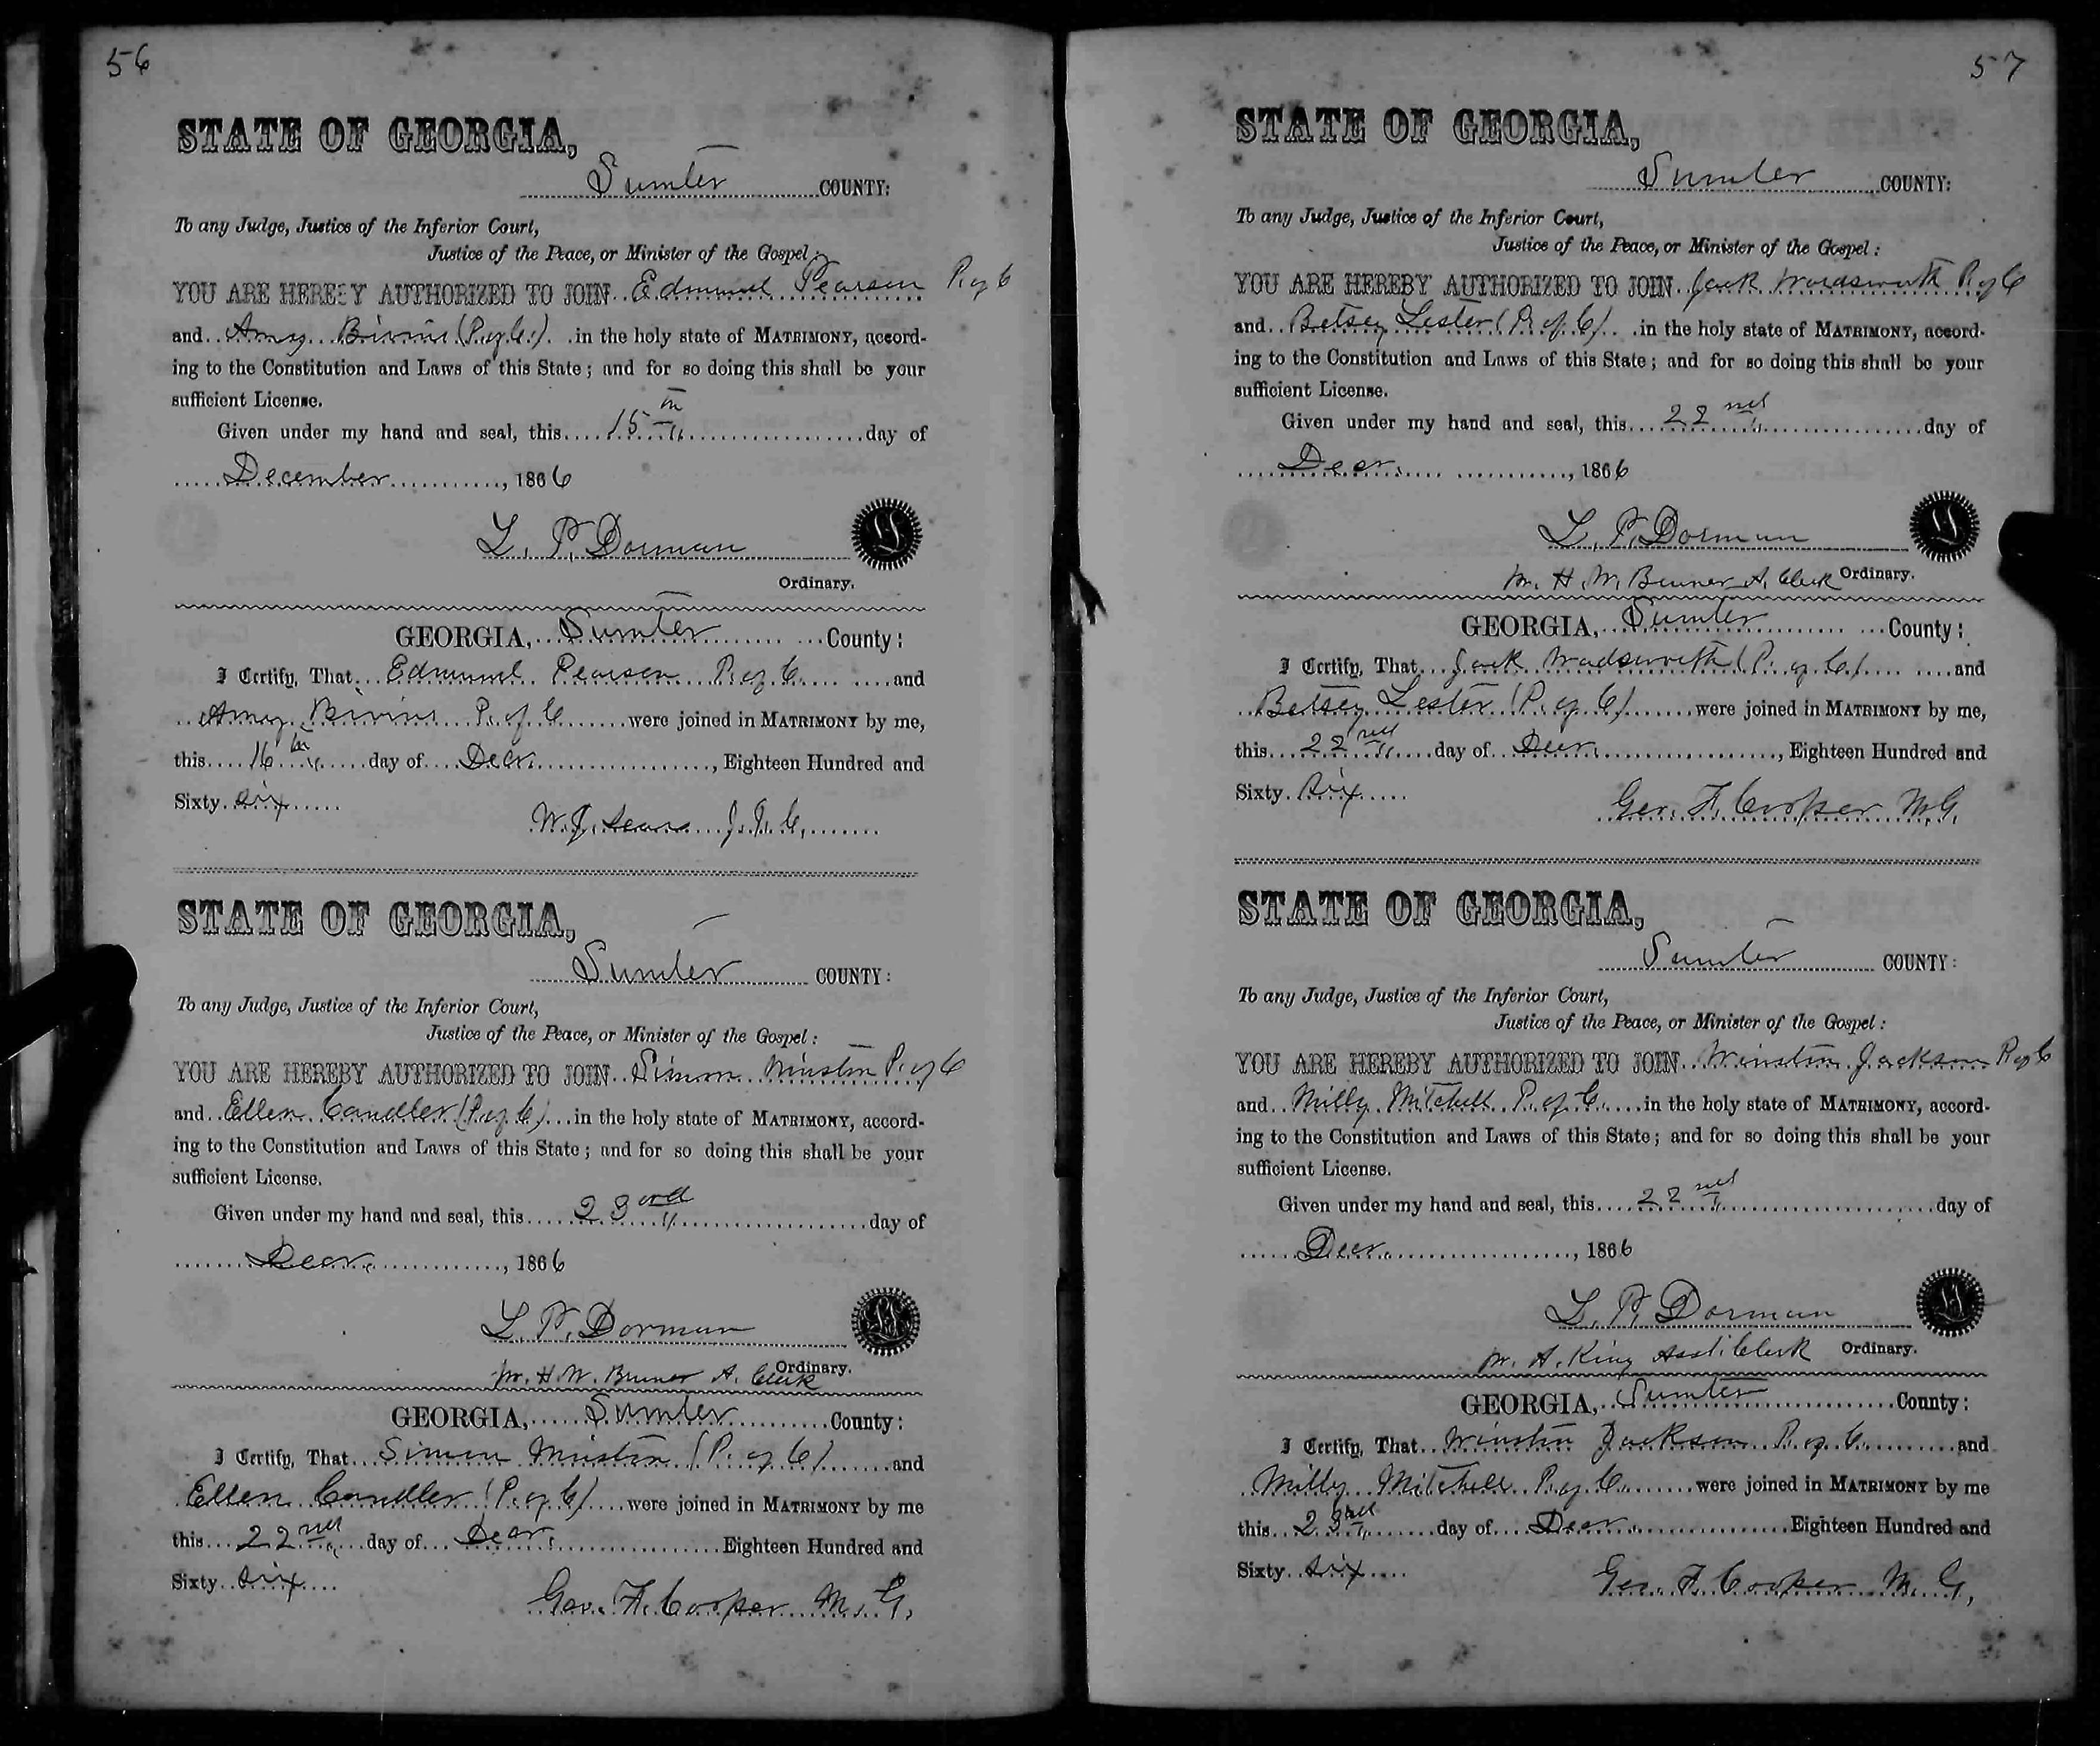 56
STATE OF GEORGIA,
Sumter COUNTY:
To any Judge, Justice of the Inferior Court,
Justice of the Peace, or Minister of the Gospel:
YOU ARE HEREBY AUTHORIZED TO JOIN Edmund Pearson P. of C
and Amy Bivins (P. of C.) in the holy state of MATRIMONY, accord-
ing to the Constitution and Laws of this State; and for so doing this shall be your
sufficient License.
Given under my hand and seal, this 15th day of
December, 1866
L. P. Dorman
Ordinary.
GEORGIA, Sumter County:
I Certify, That Edmund Pearson P. of C. and
Amy Bivins P. of C were joined in MATRIMONY by me,
this 16th day of Decr., Eighteen Hundred and
Sixty six
W. J. Sears J. I. C.
STATE OF GEORGIA,
Sumter COUNTY:
To any Judge, Justice of the Inferior Court,
Justice of the Peace, or Minister of the Gospel:
YOU ARE HEREBY AUTHORIZED TO JOIN Simon P. of C
and Ellen Candler (P. of C) in the holy state of MATRIMONY, accord-
ing to the Constitution and Laws of this State; and for so doing this shall be your
sufficient License.
Given under my hand and seal, this 23rd day of
Decr., 1866
L. P. Dorman
Ordinary.
pr. H. W. Bruner A. Clerk
GEORGIA, Sumter County:
I Certify, That Simon (P. of C) and
Ellen Candler (P. of C) were joined in MATRIMONY by me
this 22nd day of Decr. Eighteen Hundred and
Sixty six
Geo. F. Cooper M. G.
57
STATE OF GEORGIA,
Sumter COUNTY:
To any Judge, Justice of the Inferior Court,
Justice of the Peace, or Minister of the Gospel:
YOU ARE HEREBY AUTHORIZED TO JOIN Jack Wordsworth P. of C
and Betsey Lester (P. of C) in the holy state of MATRIMONY, accord-
ing to the Constitution and Laws of this State; and for so doing this shall be your
sufficient License.
Given under my hand and seal, this 22nd day of
Decr., 1866
L. P. Dorman
pr. H. W. Bruner A. Clerk Ordinary.
GEORGIA, Sumter County:
I Certify, That Jack Wadsworth (P. of C.) and
Betsey Lester (P. of C) were joined in MATRIMONY by me,
this 22nd day of Decr., Eighteen Hundred and
Sixty six
Geo. F. Cooper M. G.
STATE OF GEORGIA,
Sumter COUNTY:
To any Judge, Justice of the Inferior Court,
Justice of the Peace, or Minister of the Gospel:
YOU ARE HEREBY AUTHORIZED TO JOIN Winston Jackson P. of C
and Milly Mitchell P. of C. in the holy state of MATRIMONY, accord-
ing to the Constitution and Laws of this State; and for so doing this shall be your
sufficient License.
Given under my hand and seal, this 22nd day of
Decr., 1866
L. P. Dorman
pr. A. King Asst. Clerk Ordinary.
GEORGIA, Sumter County:
I Certify, That Winston Jackson P. of C. and
Milly Mitchell P. of C. were joined in MATRIMONY by me
this 23rd day of Decr. Eighteen Hundred and
Sixty six
Geo. F. Cooper M. G.